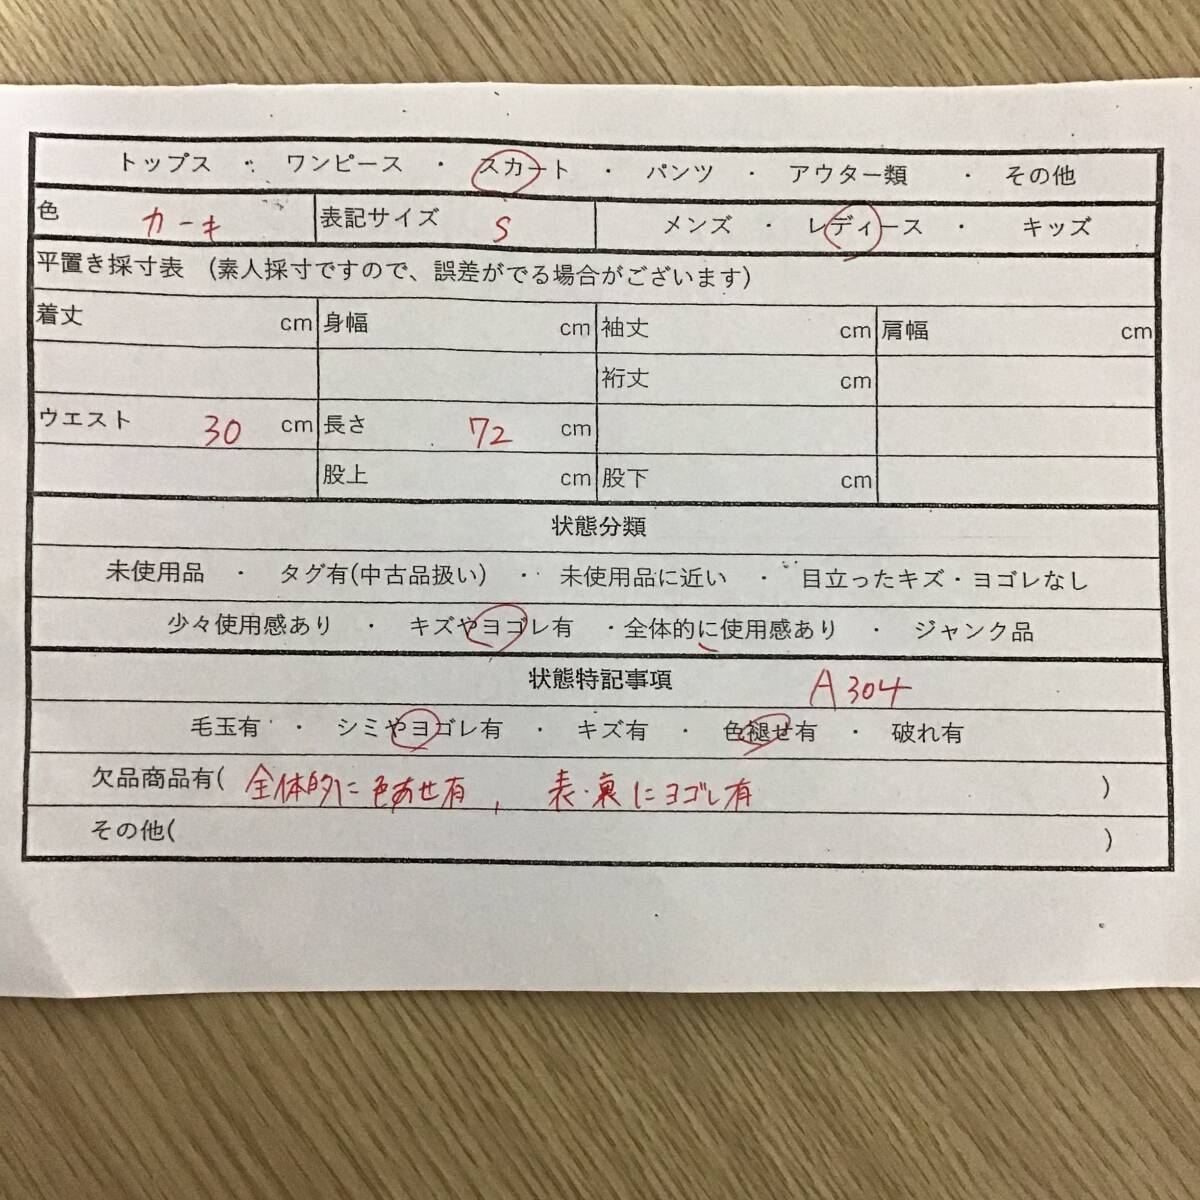 トップス ・ ワンピース ・ スカート ・ パンツ ・ アウター類 ・ その他
色 カーキ 表記サイズ S メンズ ・ レディース ・ キッズ
平置き採寸表 (素人採寸ですので、誤差がでる場合がございます)
着丈 cm 身幅 cm 袖丈 cm 肩幅 cm
裄丈 cm
ウエスト 30 cm 長さ 72 cm
股上 cm 股下 cm
状態分類
未使用品 ・ タグ有(中古品扱い) ・ 未使用品に近い ・ 目立ったキズ・ヨゴレなし
少々使用感あり ・ キズやヨゴレ有 ・全体的に使用感あり ・ ジャンク品
状態特記事項 A304
毛玉有 ・ シミやヨゴレ有 ・ キズ有 ・ 色褪せ有 ・ 破れ有
欠品商品有( 全体的に色あせ有, 表・裏にヨゴレ有 )
その他( )